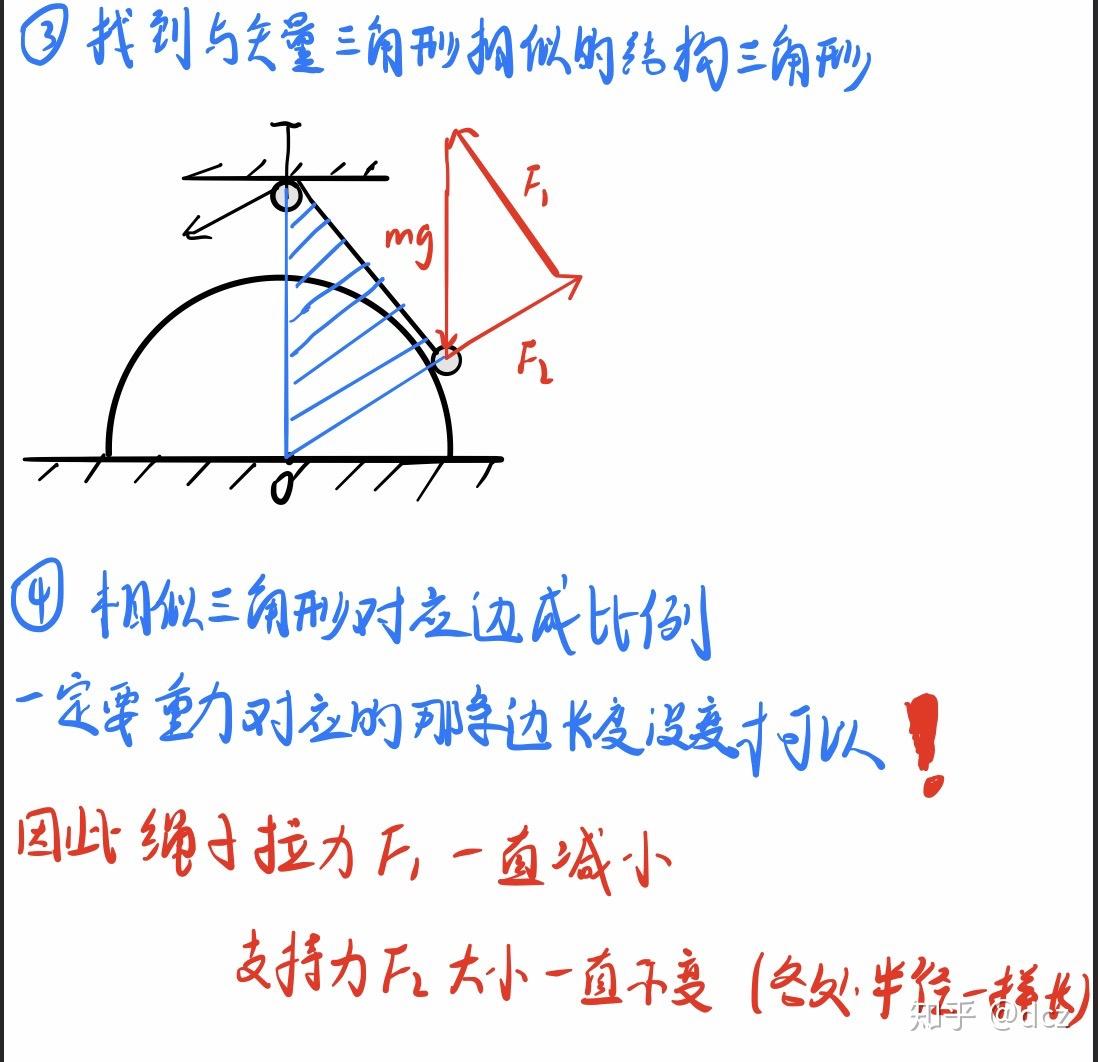 ③ 找到与矢量三角形相似的结构三角形
mg
F₁
F₂
O
④ 相似三角形对应边成比例
一定要重力对应的那条边长度没变才可以!
因此绳子拉力 F₁ 一直减小
支持力 F₂ 大小一直不变 (各处半径一样长)
知乎 @dcz